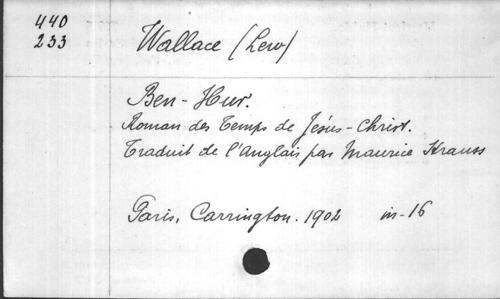 440
233
Wallace (Lew)
Ben-Hur.
Roman des Temps de Jésus-Christ.
Traduit de l'Anglais par Maurice Krauss
Paris, Carrington. 1902 in-16